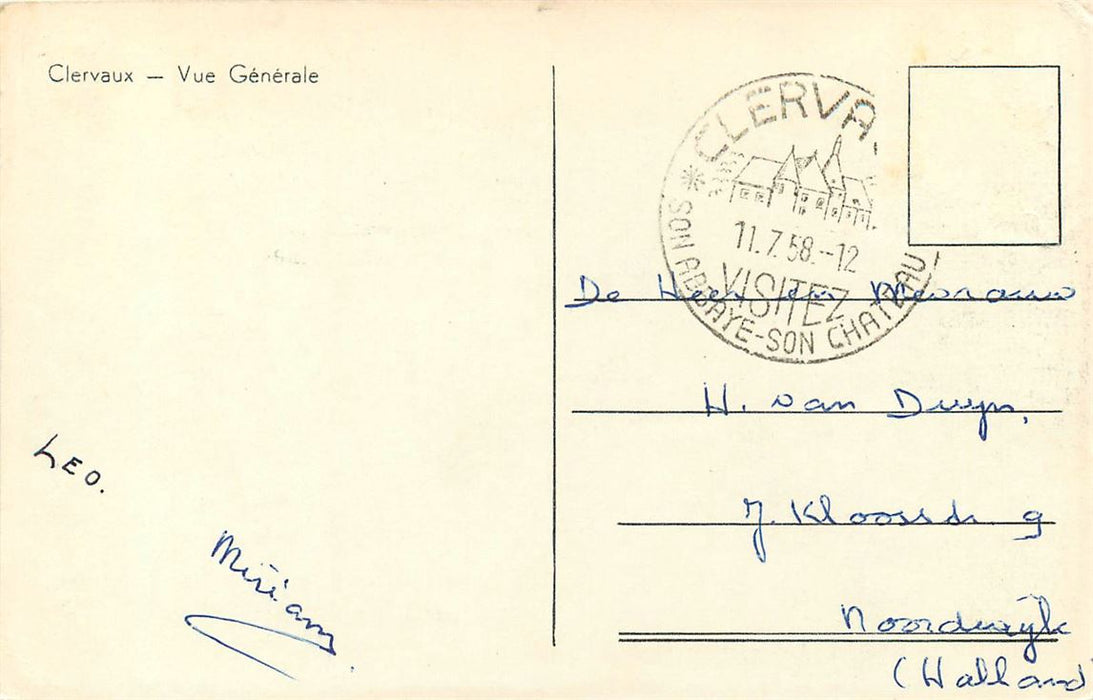 Clervaux — Vue Générale
CLERVA
11.7.58.-12
VISITEZ
SON ABBAYE-SON CHATEAU
De Heer en Mevrouw
H. van Duyn,
J. Kloosstr. 9
Noordwijk
(Holland)
LEO.
Miriam